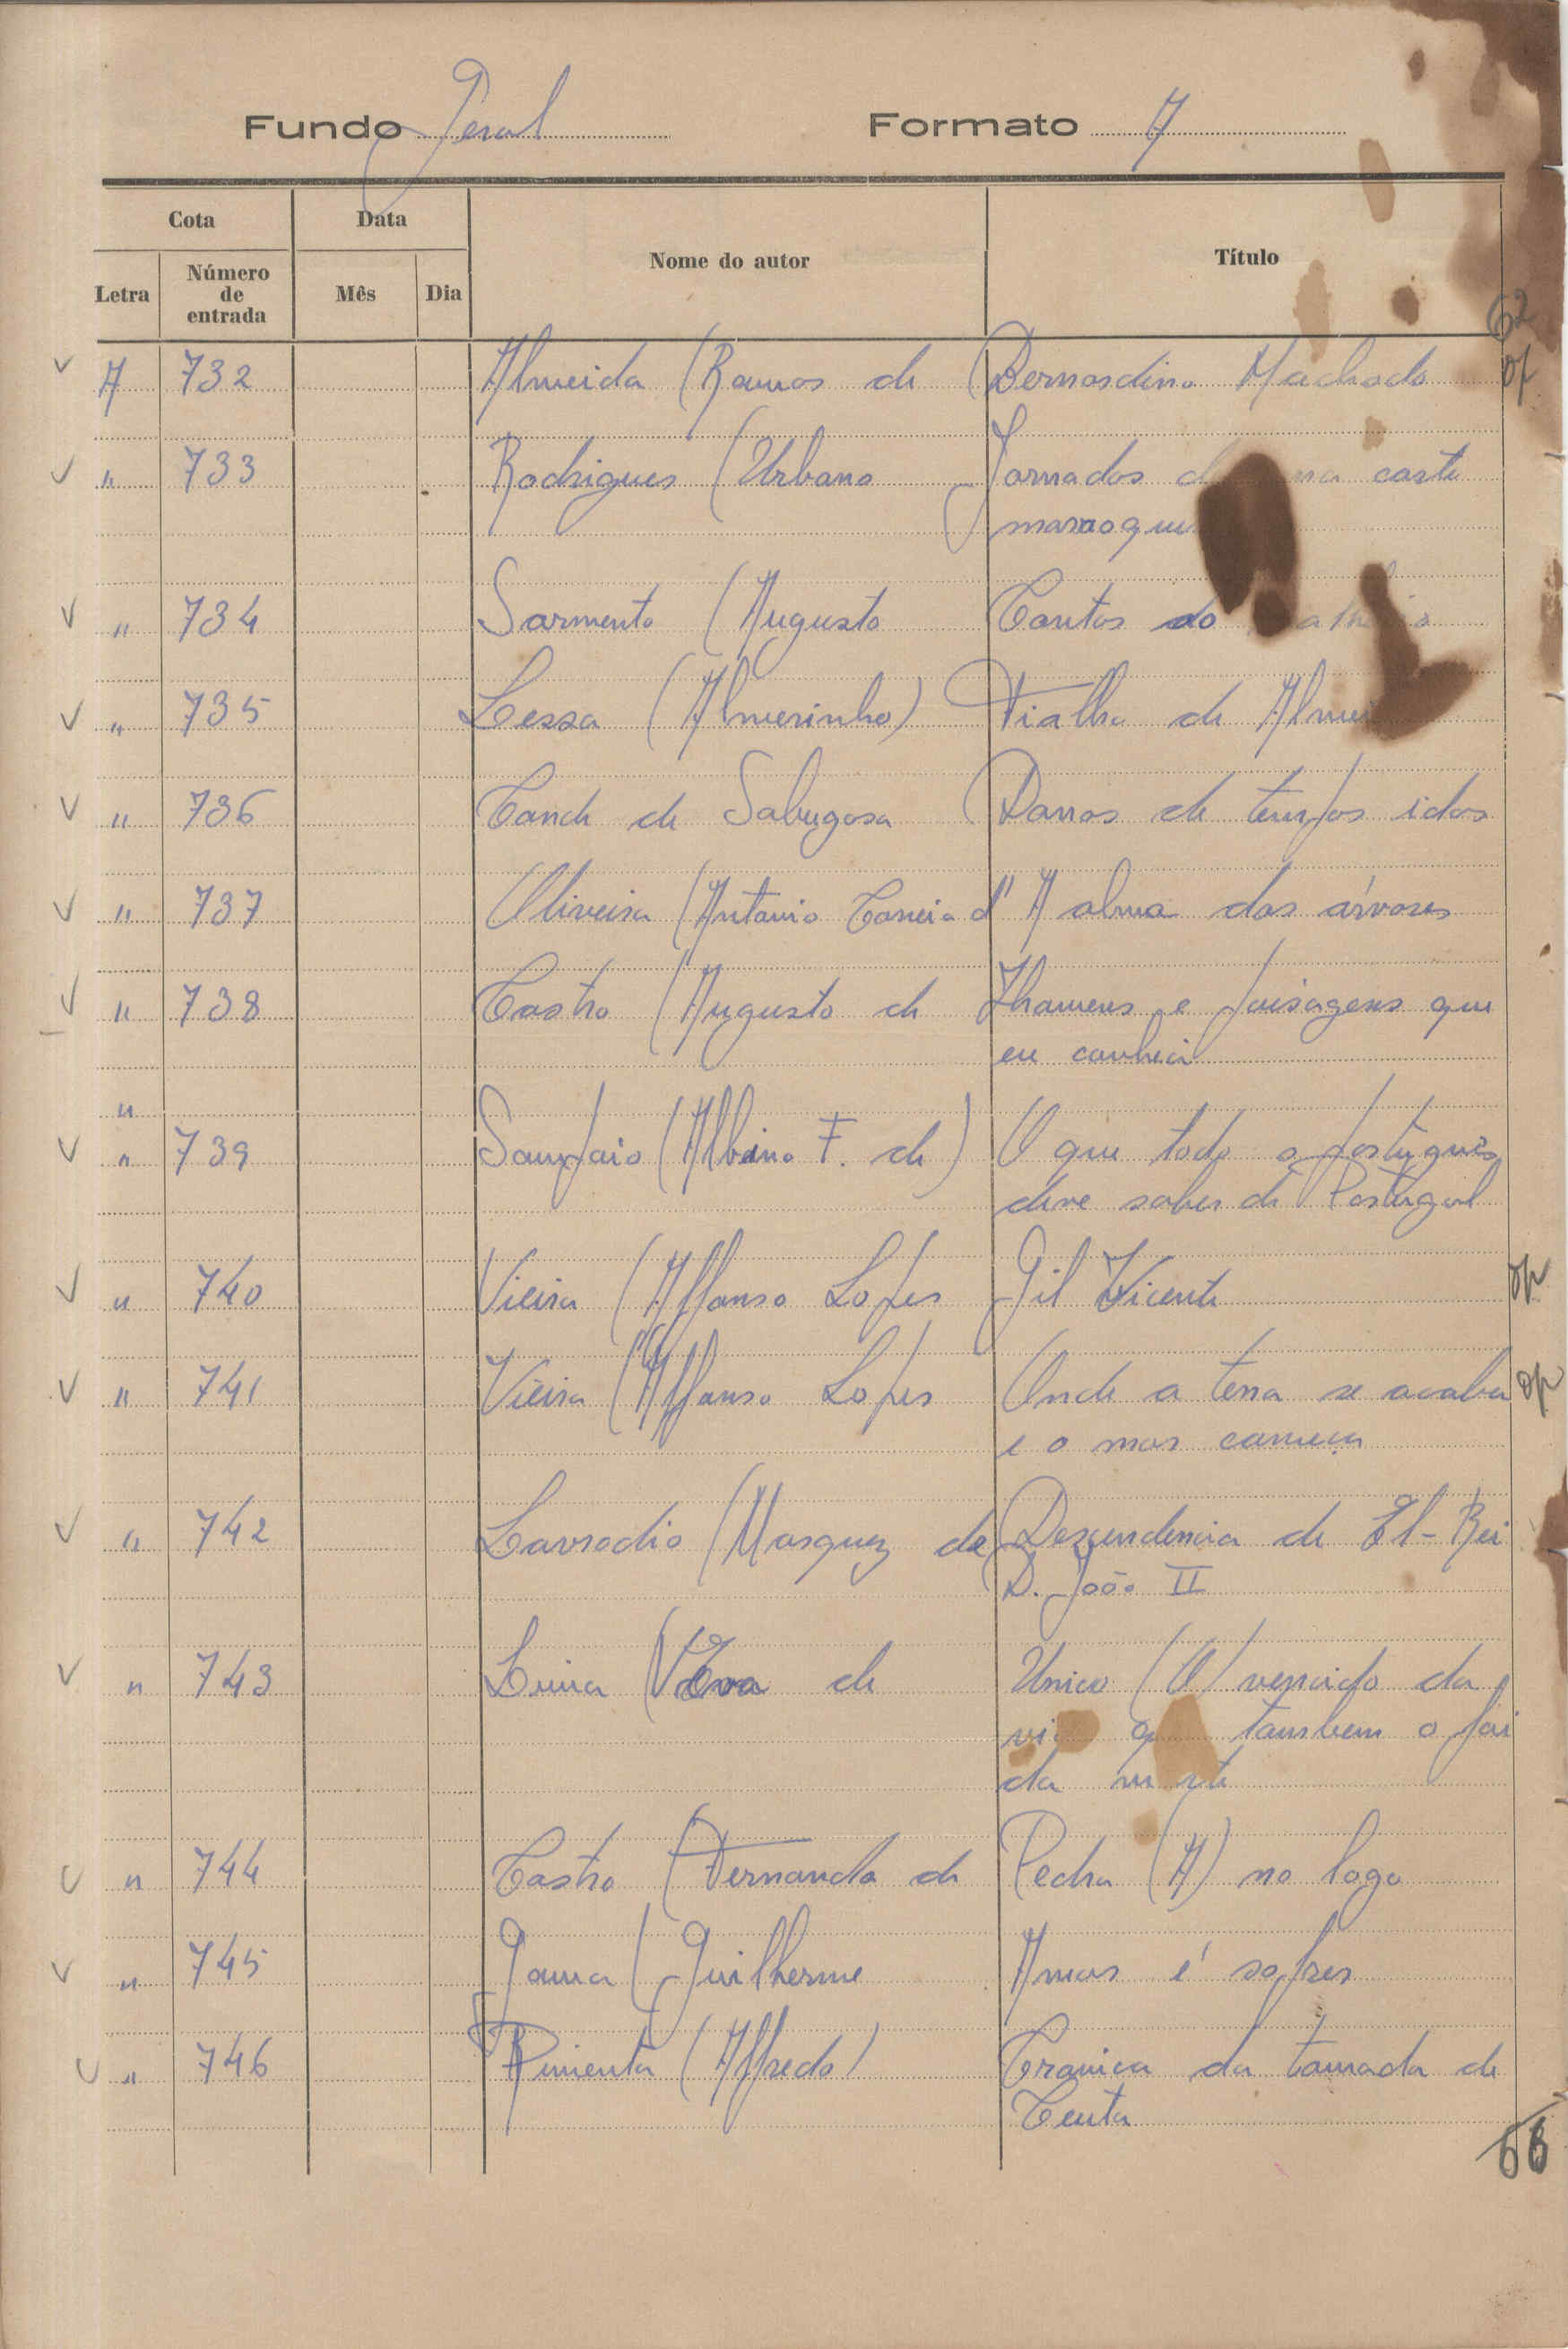 Fundo Geral Formato A
Cota Data Nome do autor Título
Letra Número de entrada Mês Dia
62
A 732 Almeida (Ramos de Bernardino Machado of
" 733 Rodrigues (Urbano Jornadas casta
marroqui
" 734 Sarmento (Augusto Contos do
" 735 Lessa (Almerindo) Fialho de Almei
" 736 Conde de Sabugosa Donas de tempos idos
" 737 Oliveira (Antonio Correia d' A alma das árvores
" 738 Castro (Augusto de Homens e paisagens que
eu conheci
"
" 739 Sampaio (Albino F. de) O que todo o português
deve saber de Portugal
" 740 Vieira (Affonso Lopes Gil Vicente op
" 741 Vieira (Affonso Lopes Onde a terra se acaba op
e o mar começa
" 742 Lavradio (Marquez de Descendencia de El-Rei
D. João II
" 743 Lima (Eva de Unico (O) vencido da
vi tambem o foi
da
" 744 Castro (Fernanda de Pedra (A) no lago
" 745 Gama (Guilherme Amar é sofrer
" 746 Pimenta (Alfredo) Cronica da tomada de
Ceuta
66